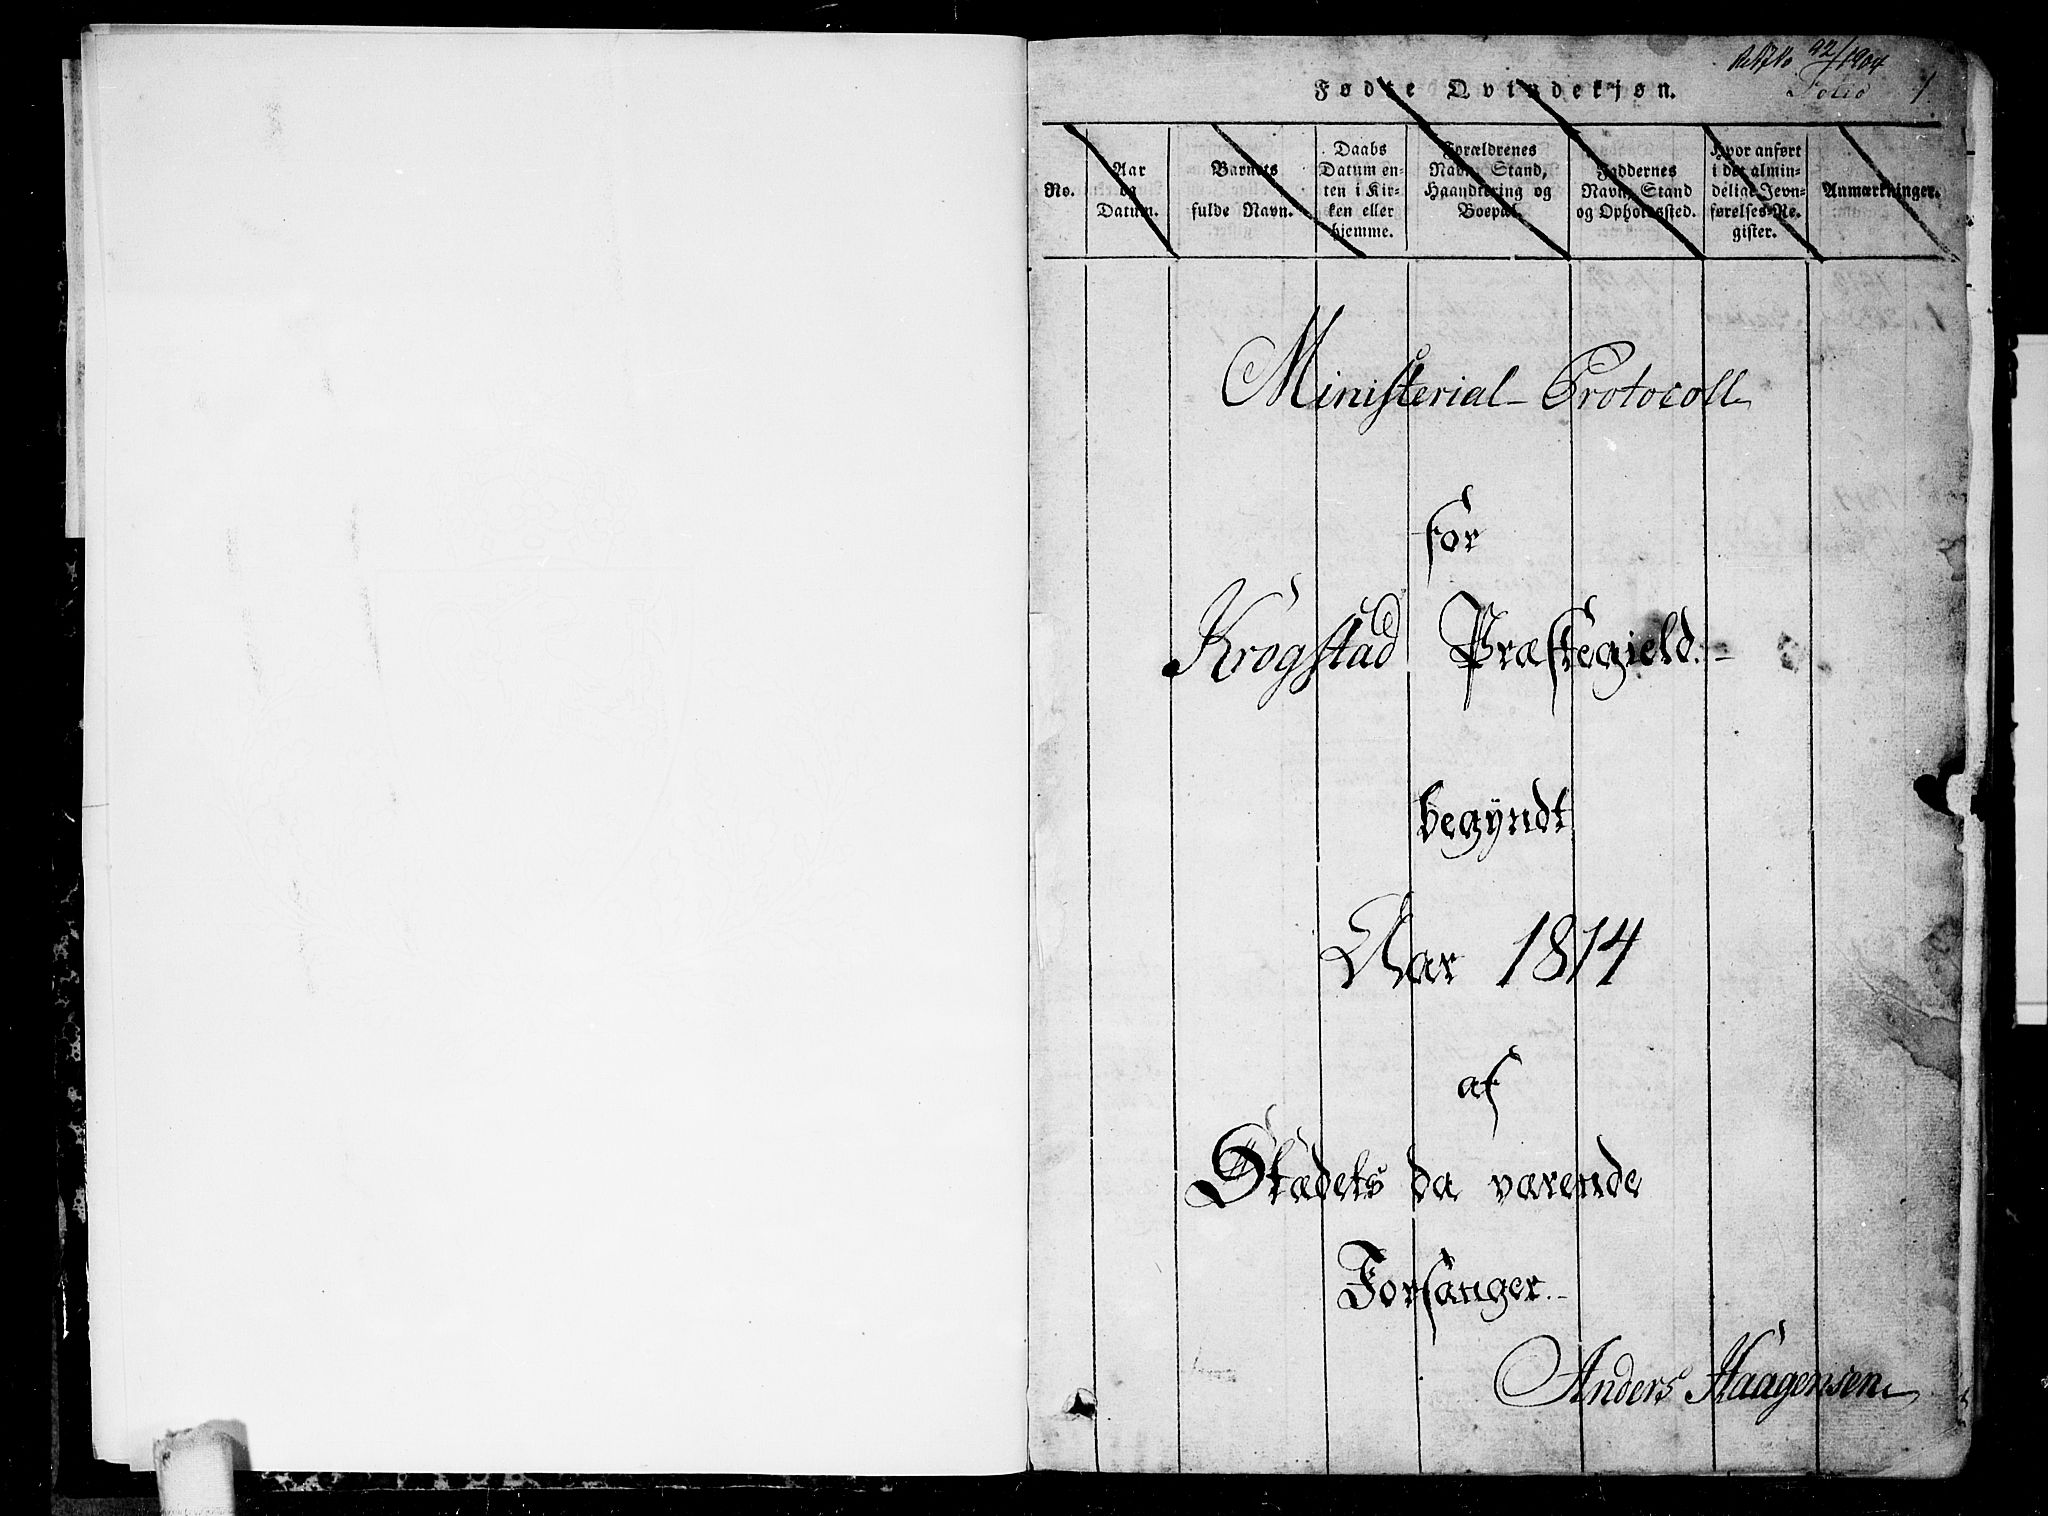 22/1904
Folio 1
Fødte Qvindekjøn.
No.
Aar
og
Datum.
Barnets
fulde Navn.
Daabs
Datum en-
ten i Kir-
ken eller
hjemme.
Forældrenes
Navn, Stand,
Haandtering og
Boepæl.
Faddernes
Navn, Stand
og Opholdssted.
Hvor anført
i det almin-
delige Jevn-
førelses-Re-
gister.
Anmærkninger.
Ministerial-Protocoll
for
Krogstad Præstegield.-
begÿndt
Aar 1814
af
Stædets da værende
Forsanger.-
Anders Haagensen